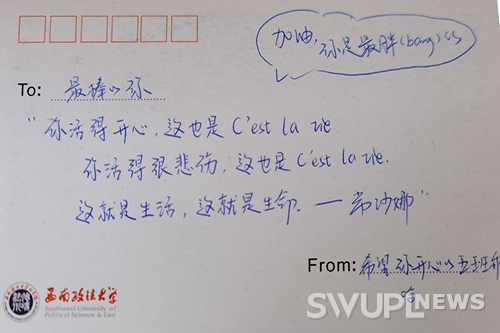 加油,
你是最胖(bang)的
To: 最棒的你
“你活得开心,这也是C'est la vie
你活得很悲伤,这也是C'est la vie.
这就是生活,这就是生命. — 常沙娜”
From: 希望你开心的五班
西南政法大学
Southwest University of
Political Science & Law
SWUPLNEWS